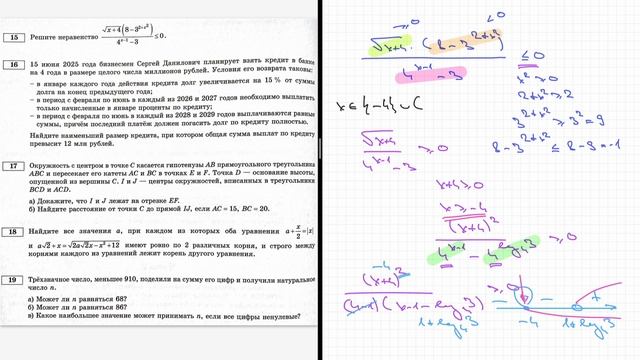 15 Решите неравенство √x+4(8−3^(2+x²)) / 4^(x−1)−3 ≤0.
16 15 июня 2025 года бизнесмен Сергей Данилович планирует взять кредит в банке
на 4 года в размере целого числа миллионов рублей. Условия его возврата таковы:
– в январе каждого года действия кредита долг увеличивается на 15 % от суммы
долга на конец предыдущего года;
– в период с февраля по июнь в каждый из 2026 и 2027 годов необходимо выплатить
только начисленные в январе проценты по кредиту;
– в период с февраля по июнь в каждый из 2028 и 2029 годов выплачиваются равные
суммы, причём последний платёж должен погасить долг по кредиту полностью.
Найдите наименьший размер кредита, при котором общая сумма выплат по кредиту
превысит 12 млн рублей.
17 Окружность с центром в точке C касается гипотенузы AB прямоугольного треугольника
ABC и пересекает его катеты AC и BC в точках E и F. Точка D — основание высоты,
опущенной из вершины C. I и J — центры окружностей, вписанных в треугольники
BCD и ACD.
а) Докажите, что I и J лежат на отрезке EF.
б) Найдите расстояние от точки C до прямой IJ, если AC=15, BC=20.
18 Найдите все значения a, при каждом из которых оба уравнения a+x/2=|x|
и a√2+x=√2a√2x−x²+12 имеют ровно по 2 различных корня, и строго между
корнями каждого из уравнений лежит корень другого уравнения.
19 Трёхзначное число, меньшее 910, поделили на сумму его цифр и получили натуральное
число n.
а) Может ли n равняться 68?
б) Может ли n равняться 86?
в) Какое наибольшее значение может принимать n, если все цифры ненулевые?
≥0 <0
√x+4 · (8−3^(2+x²))
4^(x−1) −3
≤0
x² ≥0
2+x² ≥2
3^(2+x²) ≥ 3² = 9
8−3^(2+x²) ≤ 8−9=−1
x ∈ {−4} ∪ (
√x+4
4^(x−1) −3
≥0
x+4≥0
x≥−4
(x+4)²
4^(x−1) − 4^(log₄3)
≥0
−4
≥0
1+log₄3
− − +
−4 1+log₄3